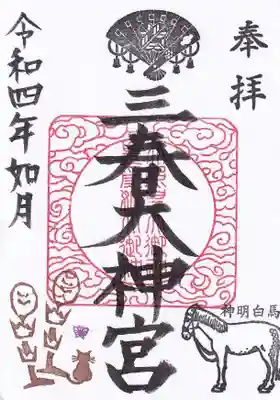 奉拝
三春大神宮
令和四年如月
神明白馬